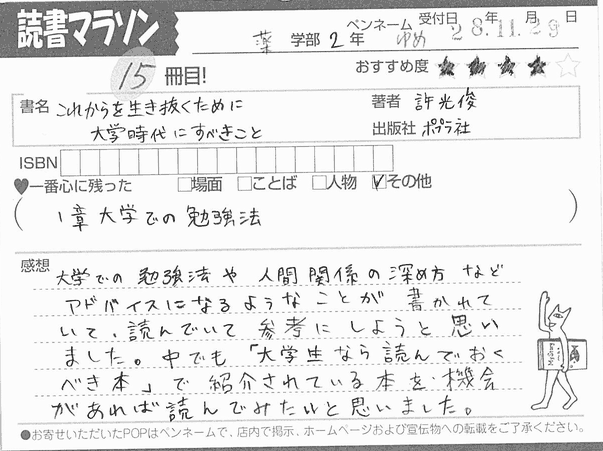 読書マラソン
薬 学部 2 年 ペンネーム ゆめ 受付日 28年11月29日
15 冊目!
おすすめ度 ★★★★☆
書名 これからを生き抜くために
大学時代にすべきこと
著者 許光俊
出版社 ポプラ社
ISBN
♥一番心に残った □場面 □ことば □人物 ☑その他
( 1章 大学での勉強法 )
感想
大学での勉強法や人間関係の深め方など
アドバイスになるようなことが書かれて
いて、読んでいて参考にしようと思い
ました。中でも「大学生なら読んでおく
べき本」で紹介されている本を機会
があれば読んでみたいと思いました。
●お寄せいただいたPOPはペンネームで、店内で掲示、ホームページおよび宣伝物への転載をご了承ください。